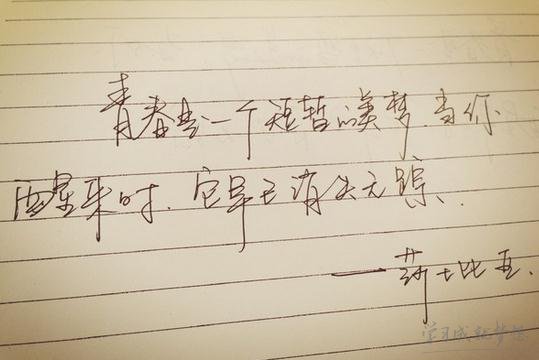 青春是一个短暂的美梦,当你
醒来时,它早已消失无踪、
——莎士比亚.
学习成就梦想